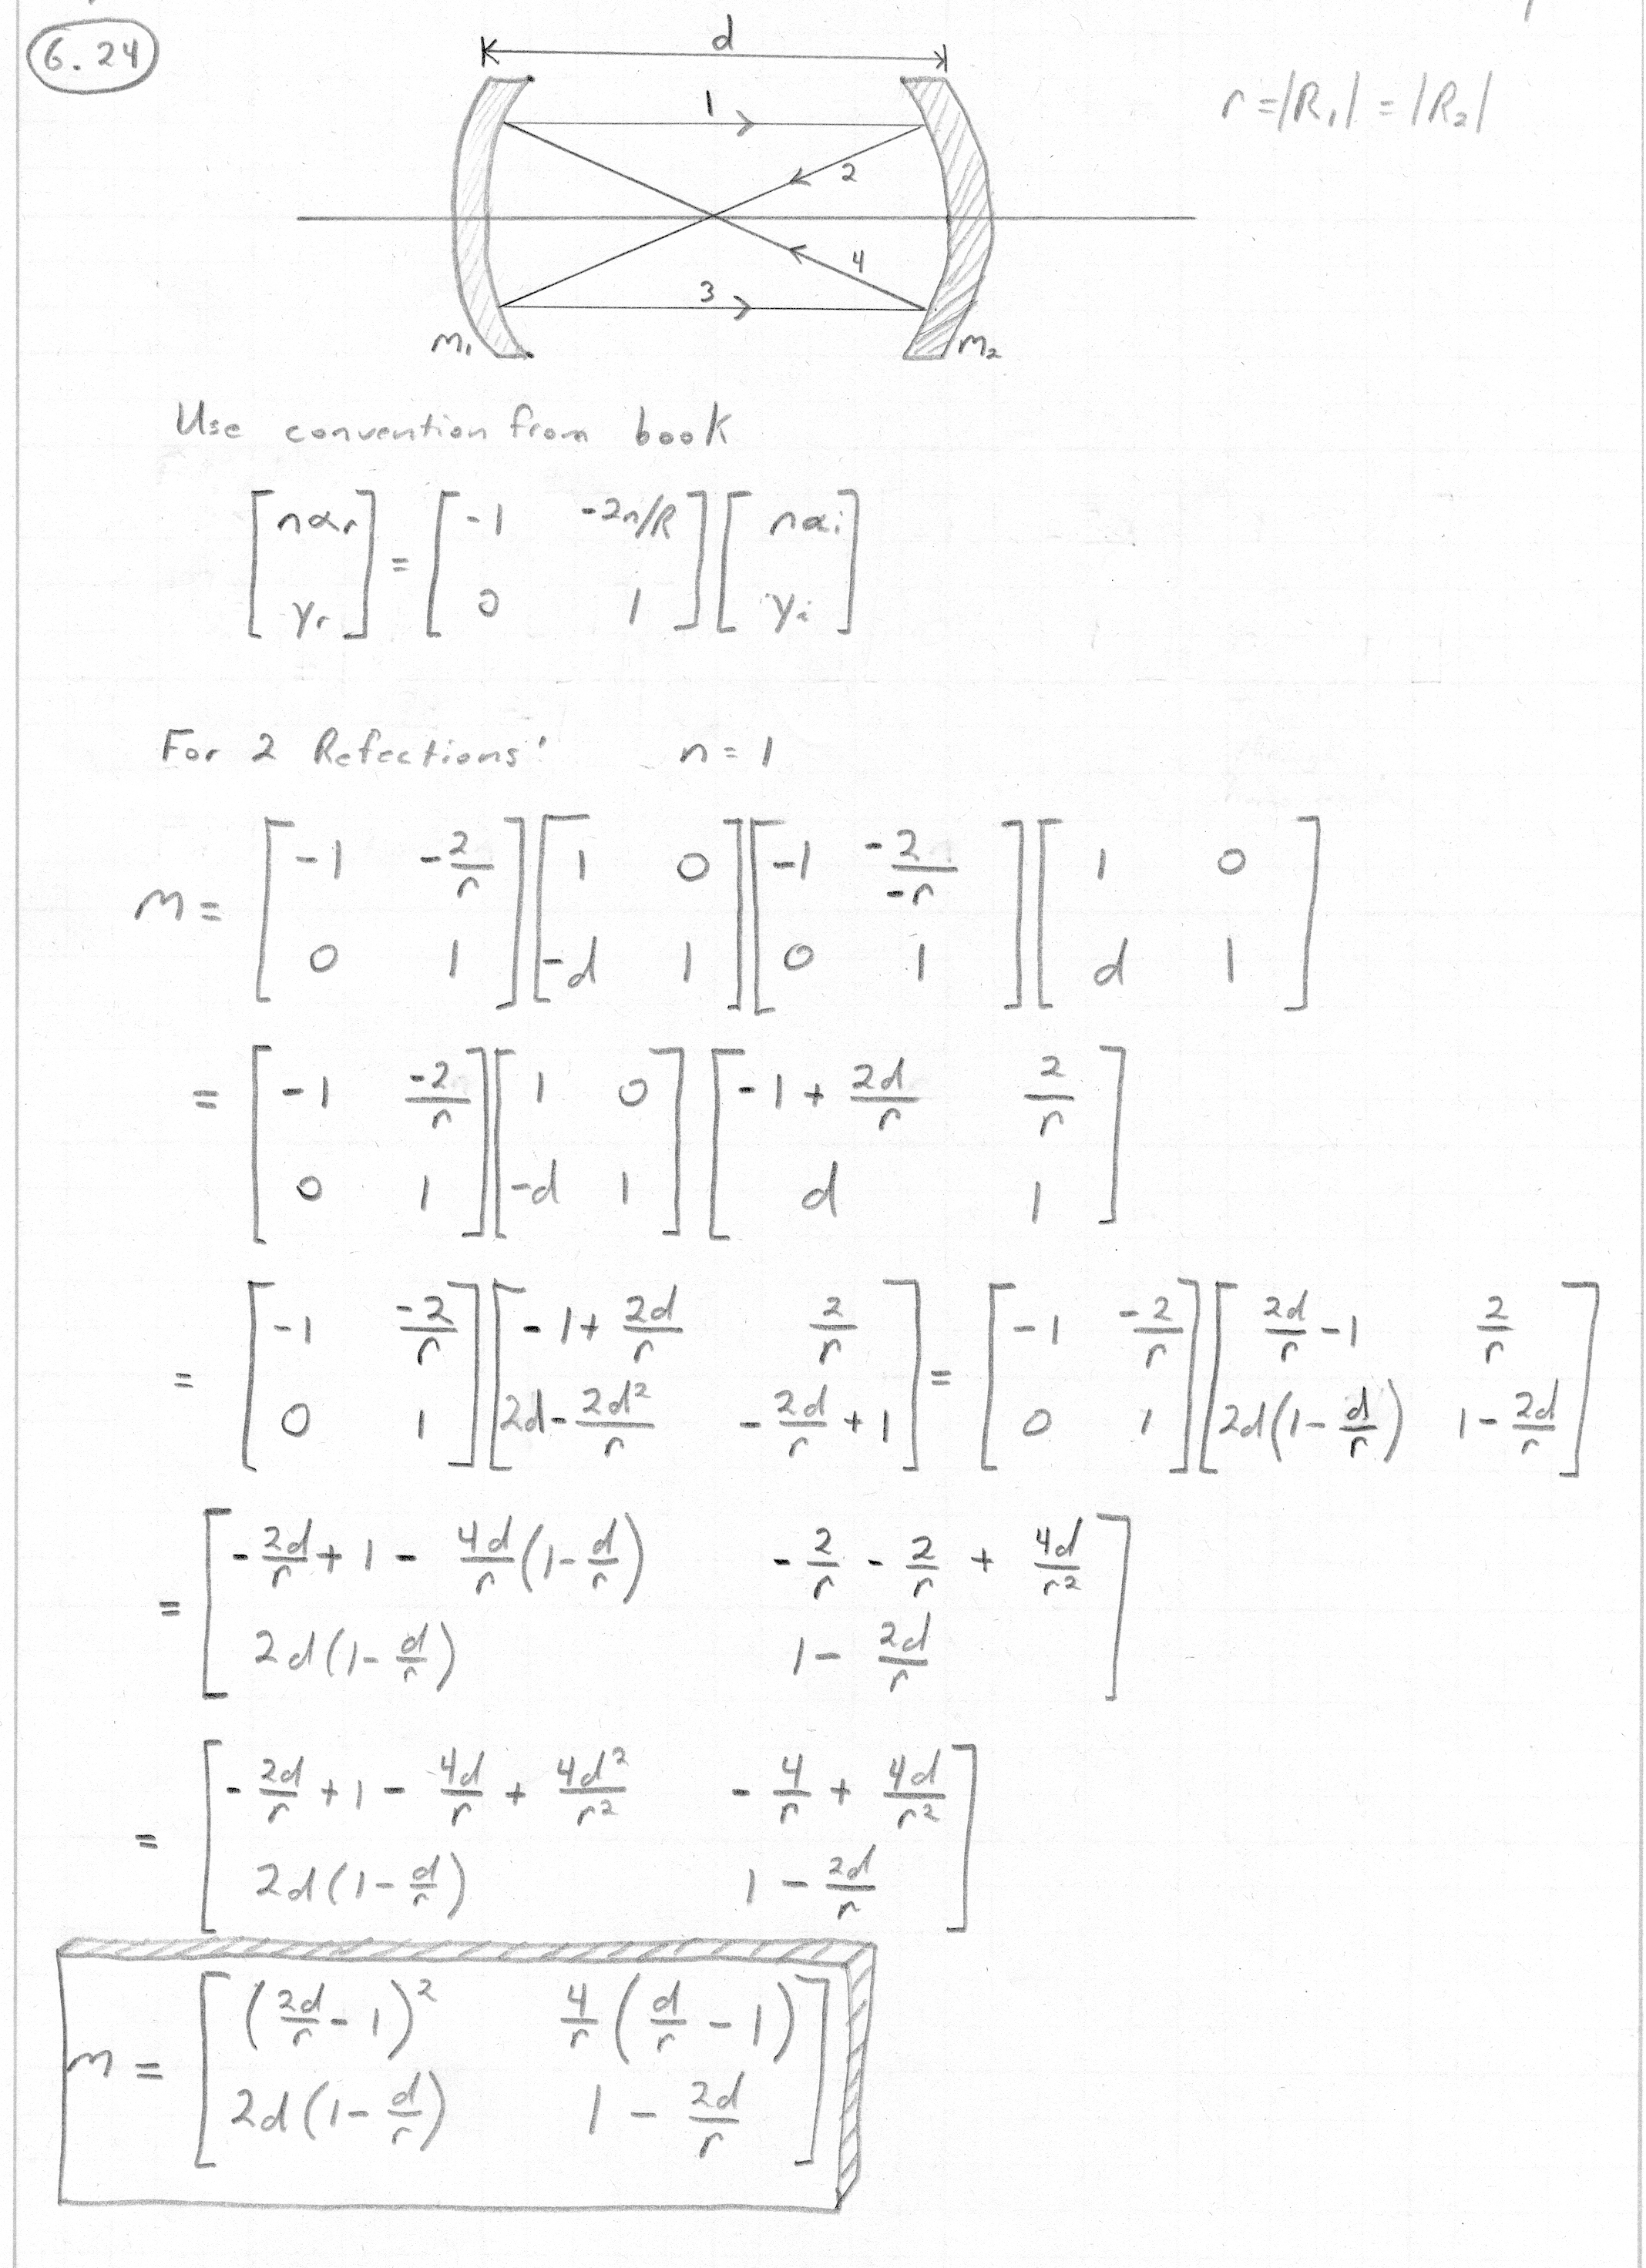 6.24
d
r = |R₁| = |R₂|
1
2
4
3
m₁ m₂
Use convention from book
[nαᵣ; yᵣ] = [-1 -2n/R; 0 1] [nαᵢ; yᵢ]
For 2 Refections: n = 1
m = [-1 -2/r; 0 1] [1 0; -d 1] [-1 -2/-r; 0 1] [1 0; d 1]
= [-1 -2/r; 0 1] [1 0; -d 1] [-1 + 2d/r 2/r; d 1]
= [-1 -2/r; 0 1] [-1 + 2d/r 2/r; 2d - 2d²/r -2d/r + 1] = [-1 -2/r; 0 1] [2d/r - 1 2/r; 2d(1 - d/r) 1 - 2d/r]
= [-2d/r + 1 - 4d/r(1 - d/r) -2/r - 2/r + 4d/r²; 2d(1 - d/r) 1 - 2d/r]
= [-2d/r + 1 - 4d/r + 4d²/r² -4/r + 4d/r²; 2d(1 - d/r) 1 - 2d/r]
m = [(2d/r - 1)² 4/r(d/r - 1); 2d(1 - d/r) 1 - 2d/r]